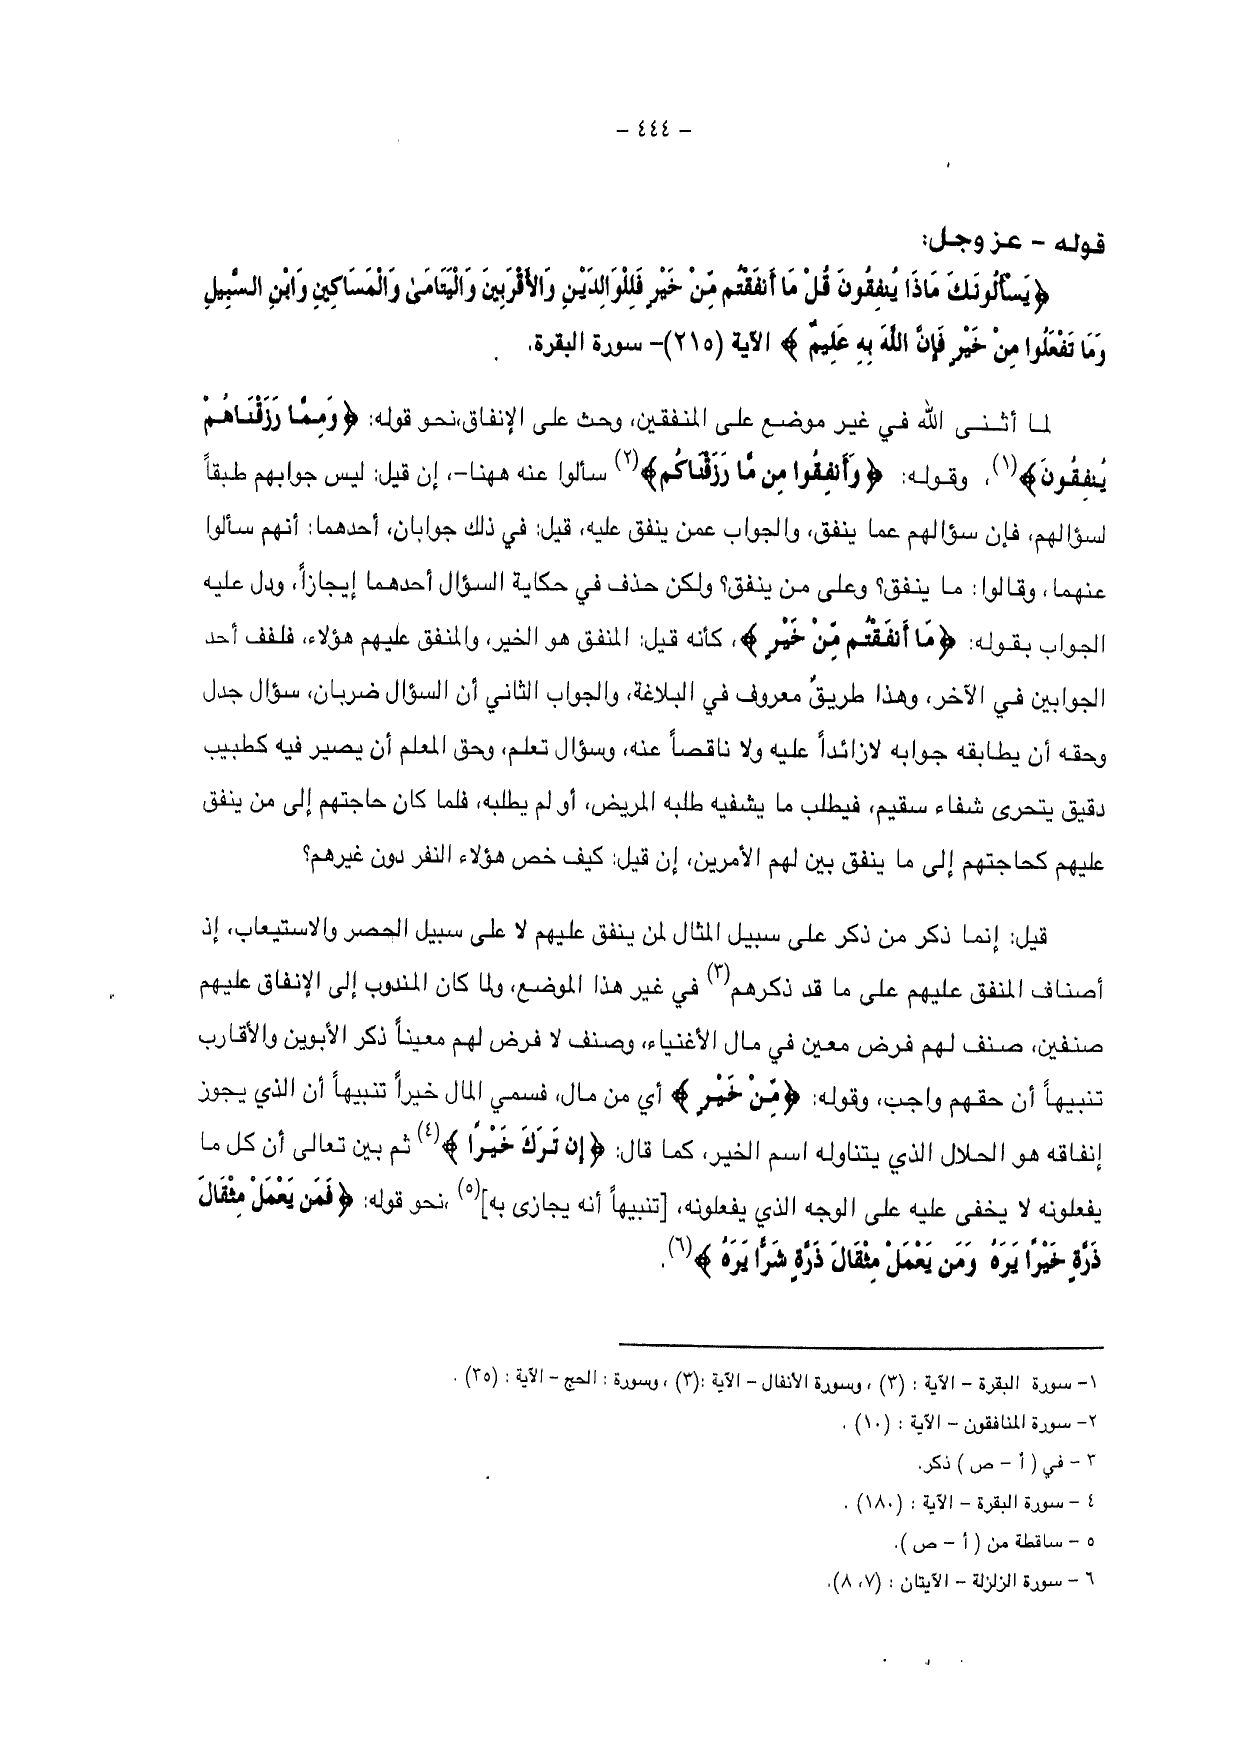 - ٤٤٤ -
قوله - عز وجل:
﴿يَسْأَلُونَكَ مَاذَا يُنفِقُونَ قُلْ مَا أَنفَقْتُم مِّنْ خَيْرٍ فَلِلْوَالِدَيْنِ وَالأَقْرَبِينَ وَالْيَتَامَىٰ وَالْمَسَاكِينِ وَابْنِ السَّبِيلِ
وَمَا تَفْعَلُوا مِنْ خَيْرٍ فَإِنَّ اللَّهَ بِهِ عَلِيمٌ﴾ الآية (٢١٥)- سورة البقرة.
لما أثنى الله في غير موضع على المنفقين، وحث على الإنفاق،نحو قوله: ﴿وَمِمَّا رَزَقْنَاهُمْ
يُنفِقُونَ﴾(١)، وقوله: ﴿وَأَنفِقُوا مِن مَّا رَزَقْنَاكُم﴾(٢) سألوا عنه ههنا-، إن قيل: ليس جوابهم طبقاً
لسؤالهم، فإن سؤالهم عما ينفق، والجواب عمن ينفق عليه، قيل: في ذلك جوابان، أحدهما: أنهم سألوا
عنهما، وقالوا: ما ينفق؟ وعلى من ينفق؟ ولكن حذف في حكاية السؤال أحدهما إيجازاً، ودل عليه
الجواب بقوله: ﴿مَا أَنفَقْتُم مِّنْ خَيْرٍ﴾، كأنه قيل: المنفق هو الخير، والمنفق عليهم هؤلاء، فلفف أحد
الجوابين في الآخر، وهذا طريقٌ معروف في البلاغة، والجواب الثاني أن السؤال ضربان، سؤال جدل
وحقه أن يطابقه جوابه لازائداً عليه ولا ناقصاً عنه، وسؤال تعلم، وحق المعلم أن يصير فيه كطبيب
دقيق يتحرى شفاء سقيم، فيطلب ما يشفيه طلبه المريض، أو لم يطلبه، فلما كان حاجتهم إلى من ينفق
عليهم كحاجتهم إلى ما ينفق بين لهم الأمرين، إن قيل: كيف خص هؤلاء النفر دون غيرهم؟
قيل: إنما ذكر من ذكر على سبيل المثال لمن ينفق عليهم لا على سبيل الحصر والاستيعاب، إذ
أصناف المنفق عليهم على ما قد ذكرهم(٣) في غير هذا الموضع، ولما كان المندوب إلى الإنفاق عليهم
صنفين، صنف لهم فرض معين في مال الأغنياء، وصنف لا فرض لهم معيناً ذكر الأبوين والأقارب
تنبيهاً أن حقهم واجب، وقوله: ﴿مِّنْ خَيْرٍ﴾ أي من مال، فسمي المال خيراً تنبيهاً أن الذي يجوز
إنفاقه هو الحلال الذي يتناوله اسم الخير، كما قال: ﴿إِن تَرَكَ خَيْرًا﴾(٤) ثم بين تعالى أن كل ما
يفعلونه لا يخفى عليه على الوجه الذي يفعلونه، [تنبيهاً أنه يجازى به](٥) ،نحو قوله: ﴿فَمَن يَعْمَلْ مِثْقَالَ
ذَرَّةٍ خَيْرًا يَرَهُ وَمَن يَعْمَلْ مِثْقَالَ ذَرَّةٍ شَرًّا يَرَهُ﴾(٦).
١- سورة البقرة - الآية : (٣) ، وسورة الأنفال - الآية :(٣) ، وسورة : الحج - الآية : (٣٥) .
٢- سورة المنافقون - الآية : (١٠) .
٣ - في ( أ - ص ) ذكر.
٤ - سورة البقرة - الآية : (١٨٠) .
٥ - ساقطة من ( أ - ص ).
٦ - سورة الزلزلة - الآيتان : (٧، ٨).